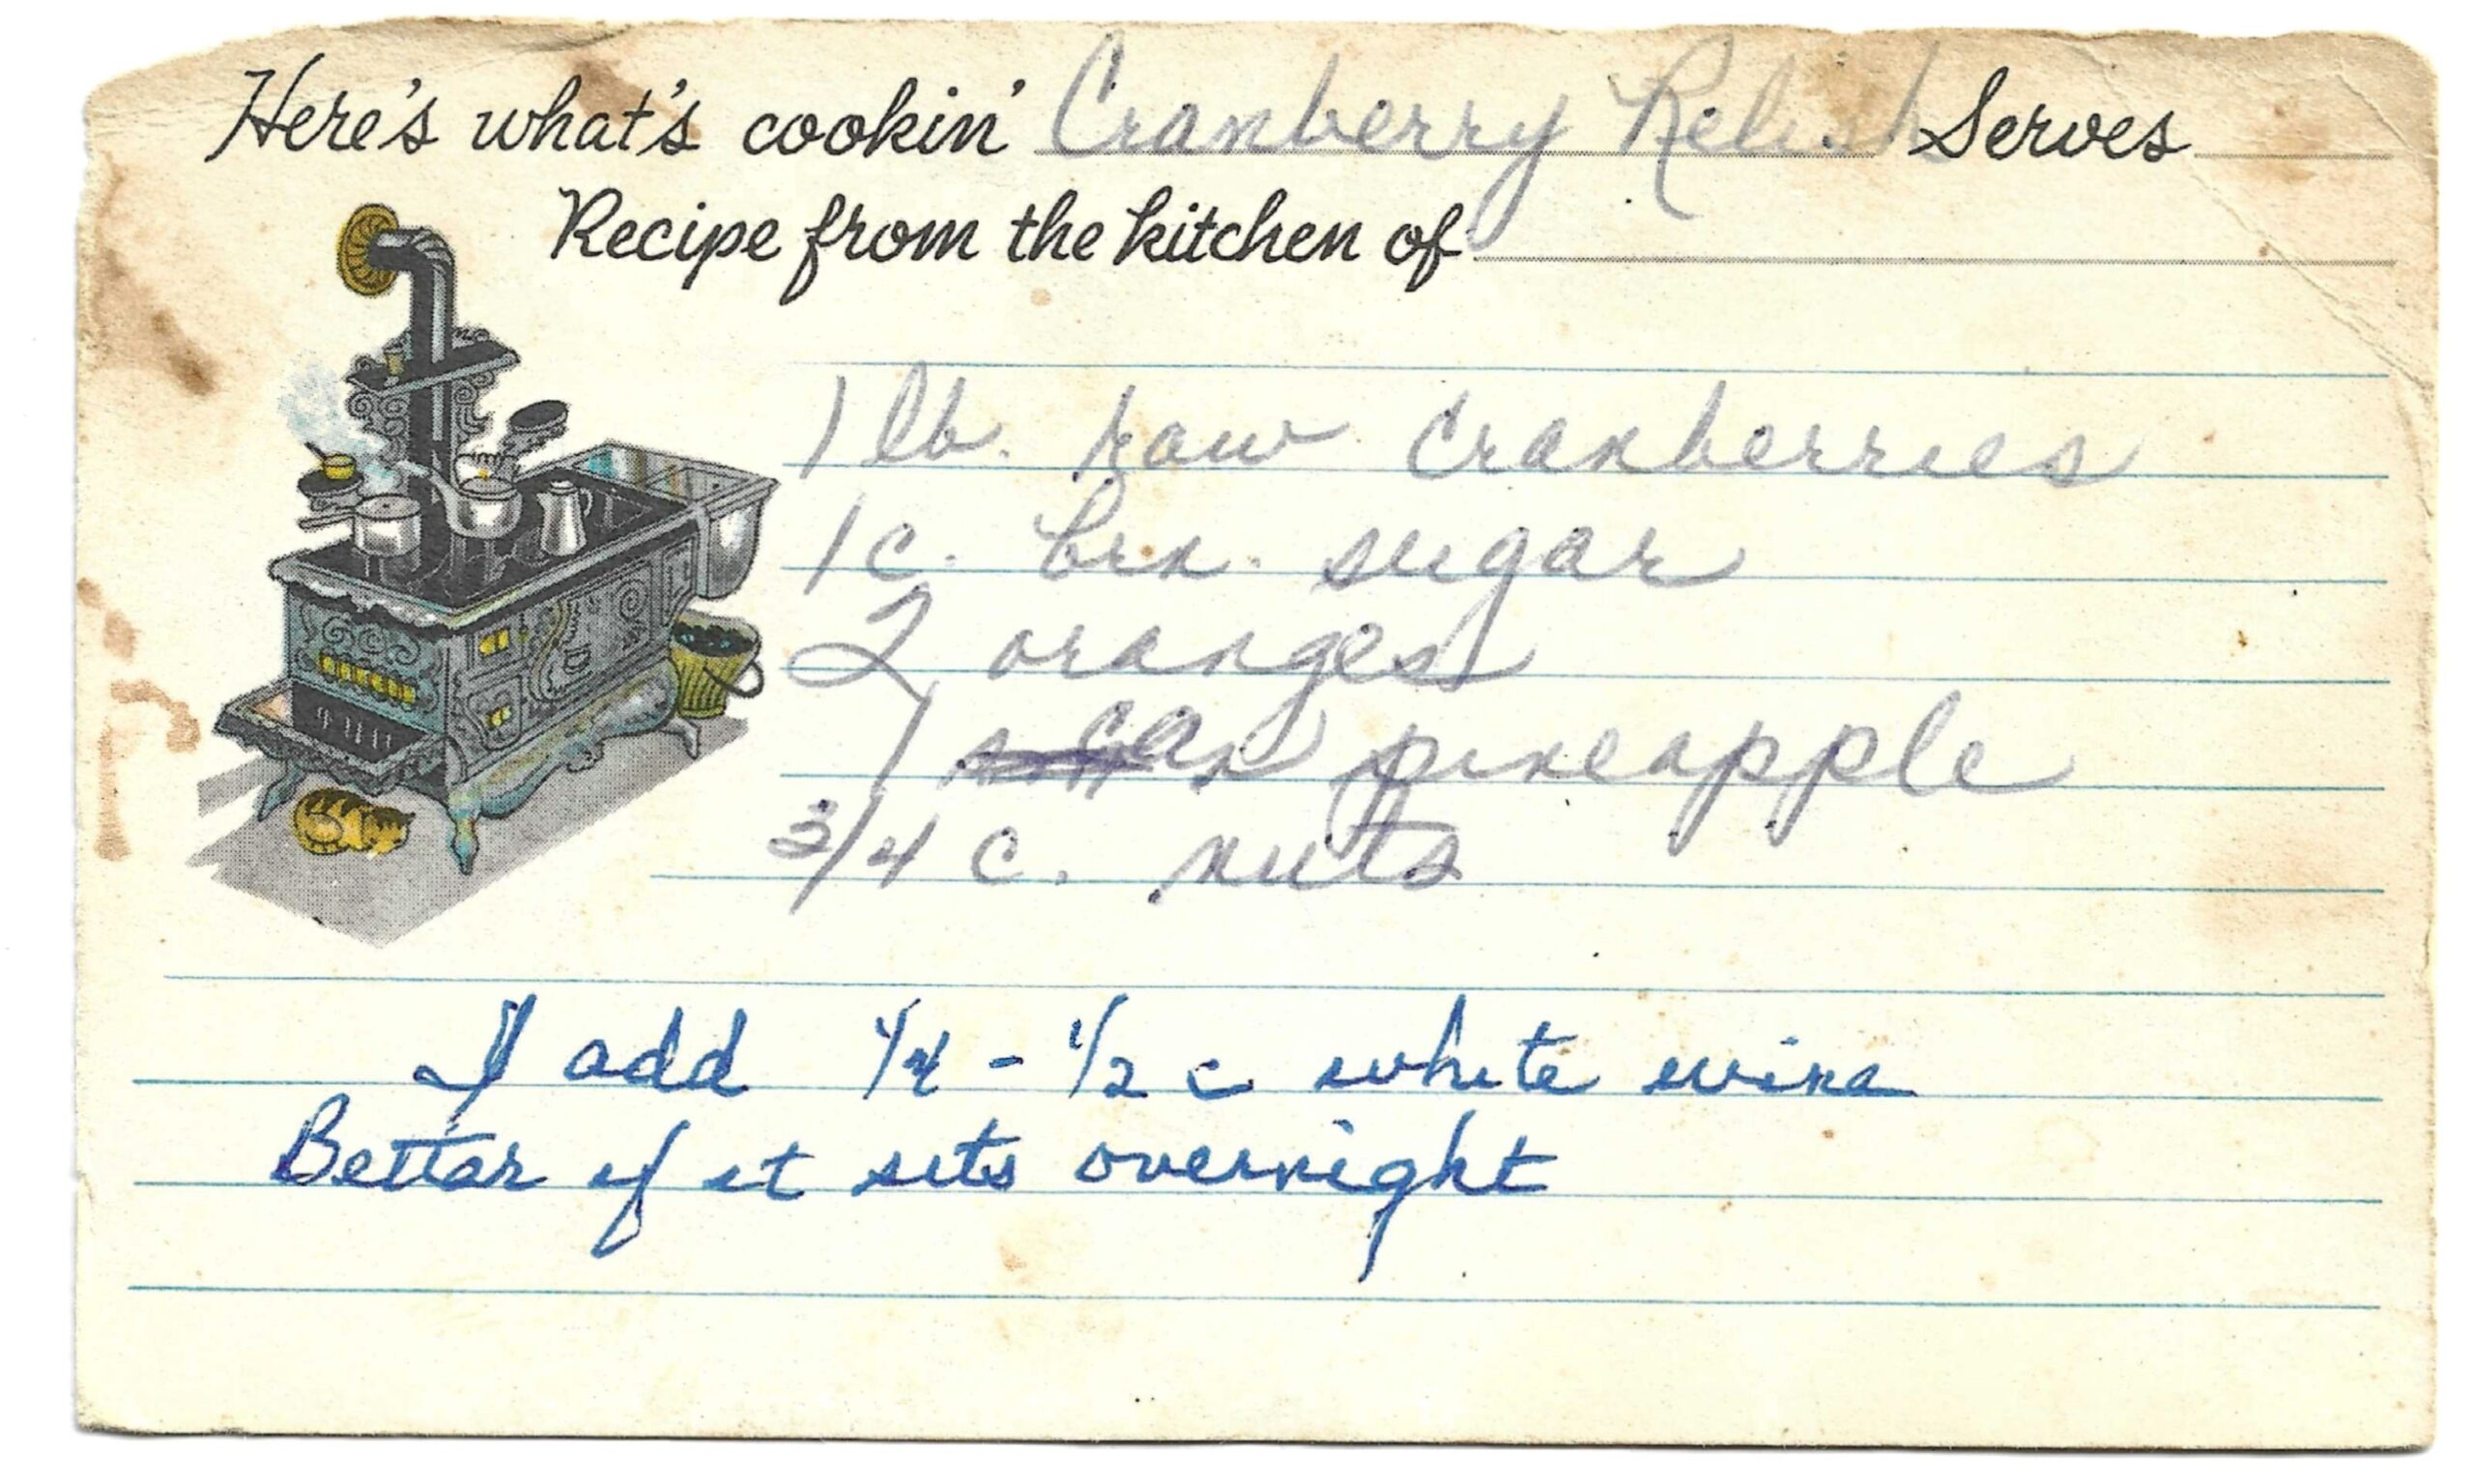 Here's what's cookin' Cranberry Relish Serves
Recipe from the kitchen of
1 lb. raw cranberries
1 c. brn. sugar
2 oranges
1 can pineapple
3/4 c. nuts
I add 1/4 - 1/2 c white wine
Better if it sits overnight